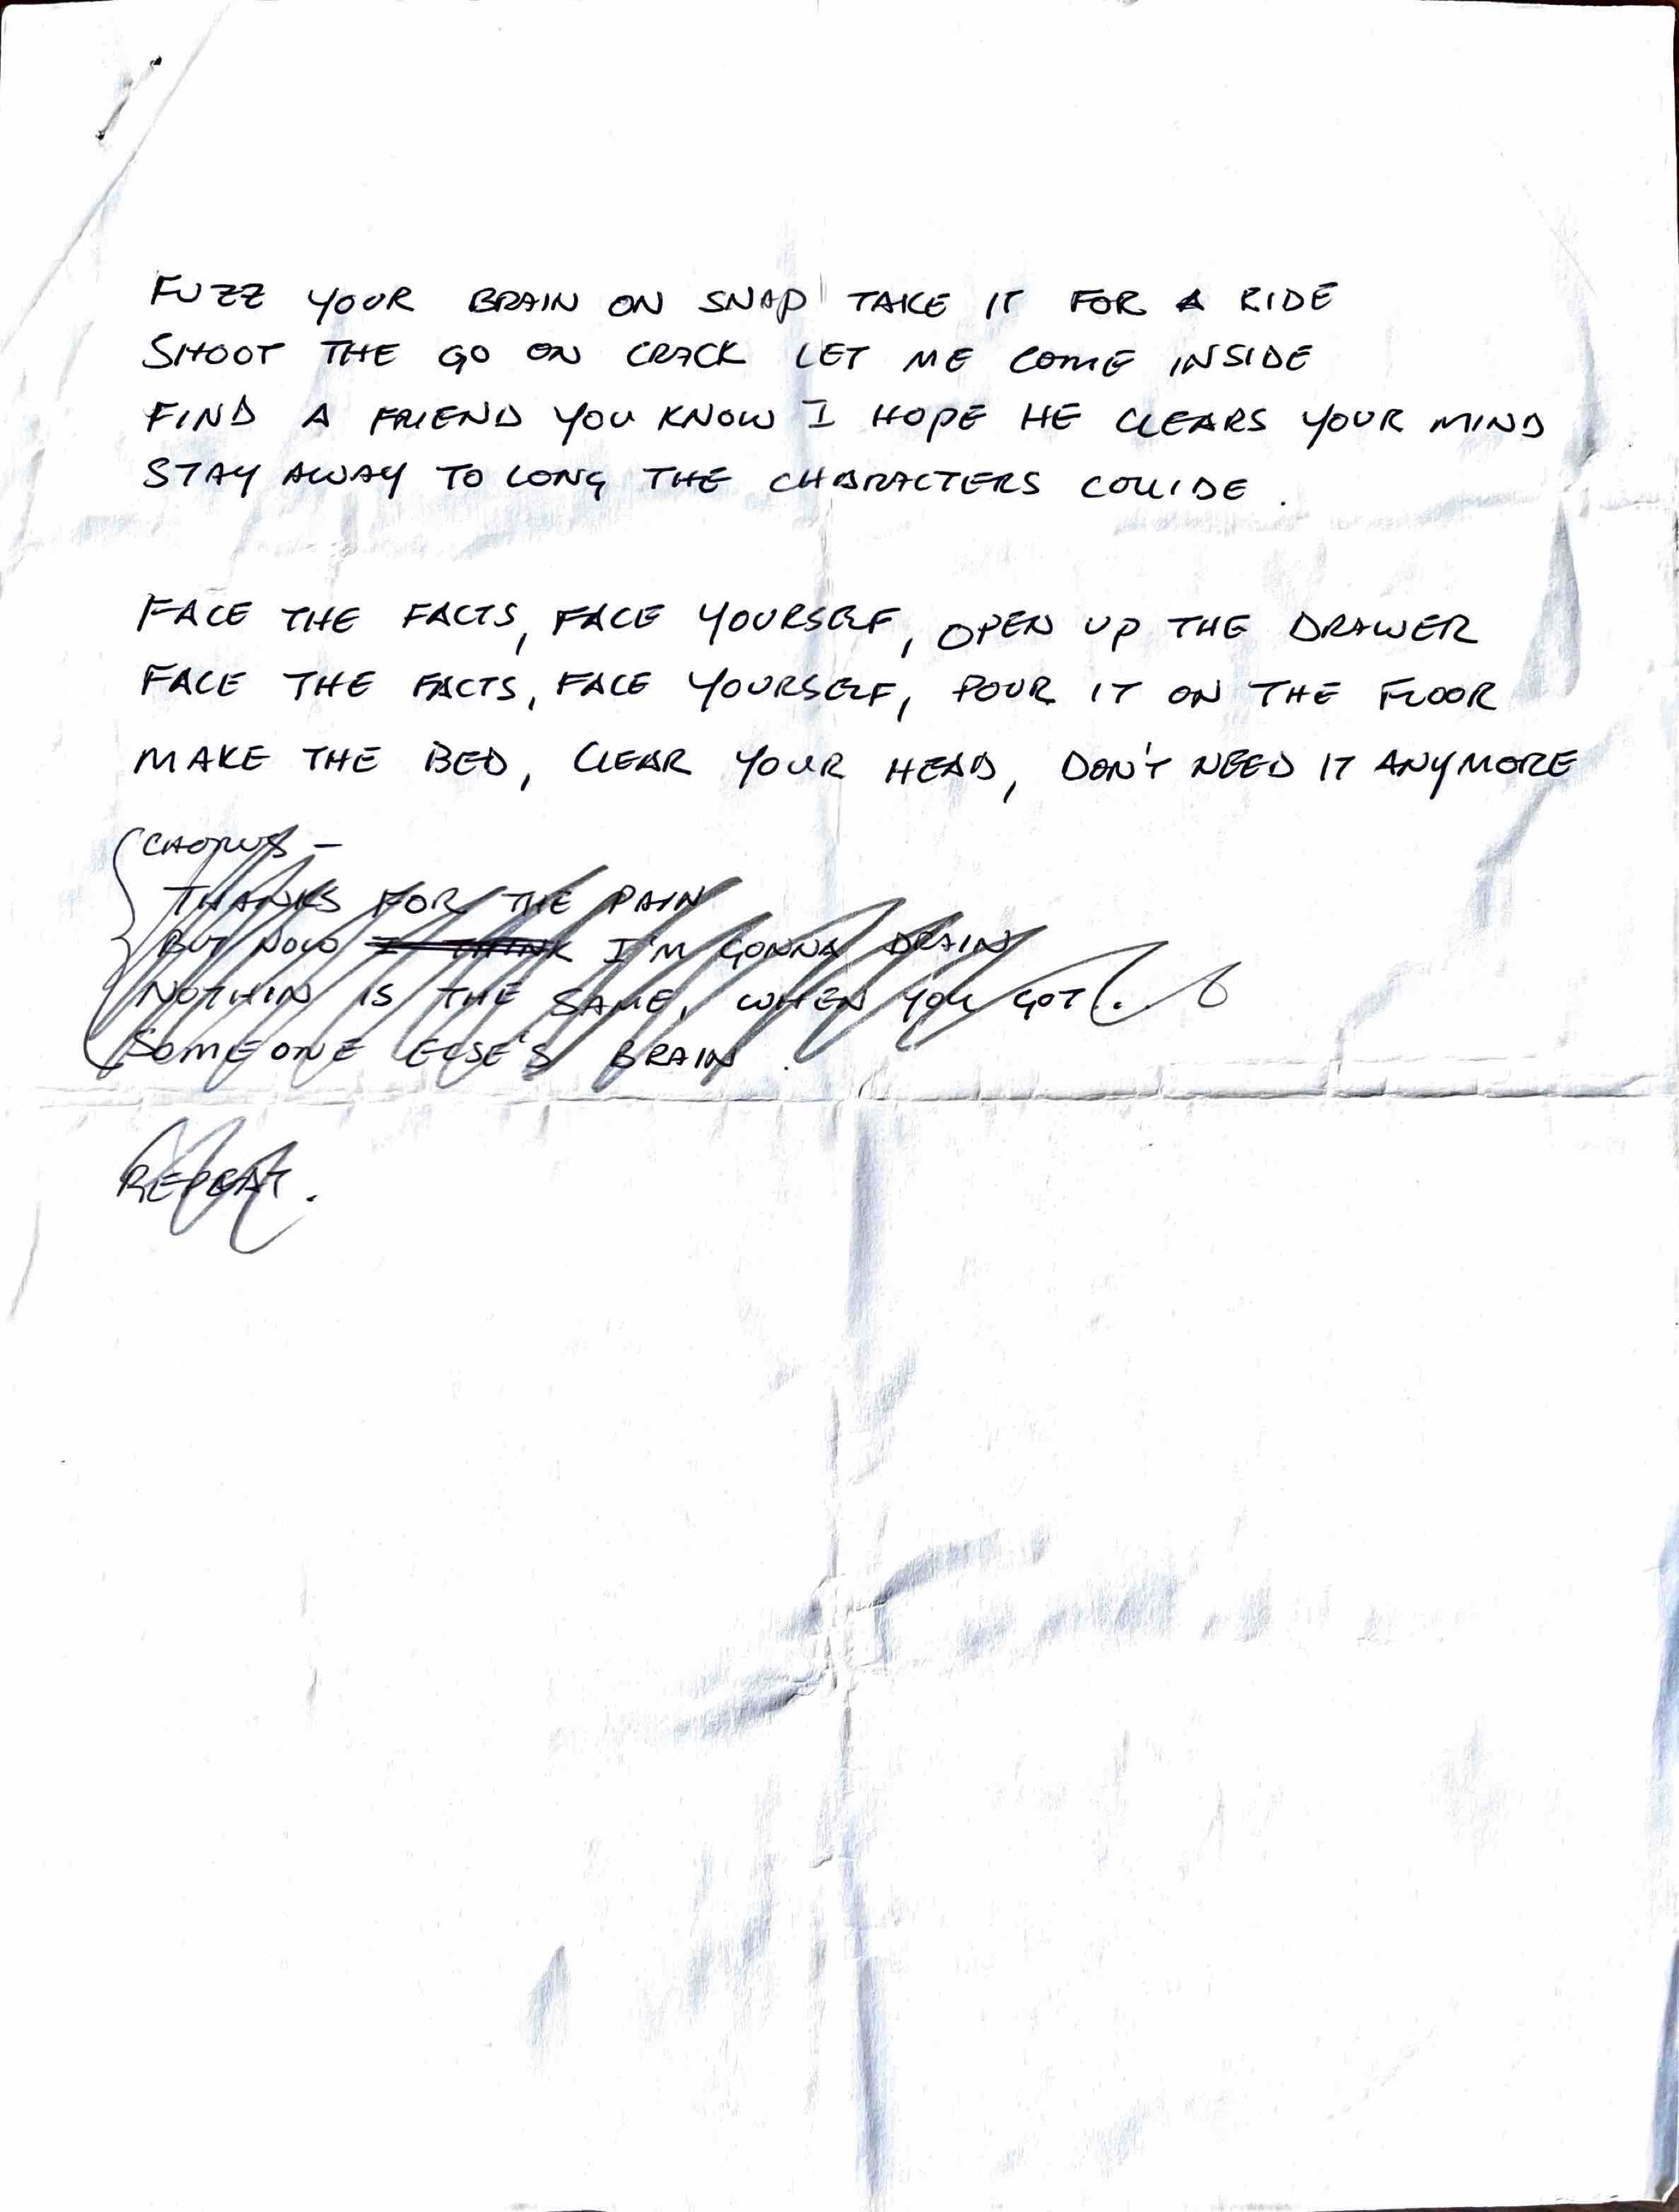 FUZZ YOUR BRAIN ON SNAP TAKE IT FOR A RIDE
SHOOT THE GO ON CRACK LET ME COME INSIDE
FIND A FRIEND YOU KNOW I HOPE HE CLEARS YOUR MIND
STAY AWAY TO LONG THE CHARACTERS COLLIDE.
FACE THE FACTS, FACE YOURSELF, OPEN UP THE DRAWER
FACE THE FACTS, FACE YOURSELF, POUR IT ON THE FLOOR
MAKE THE BED, CLEAR YOUR HEAD, DON'T NEED IT ANYMORE
CHORUS -
THANKS FOR THE PAIN
BUT NOW I THINK I'M GONNA DRAIN
NOTHIN IS THE SAME, WHEN YOU GOT
SOMEONE ELSE'S BRAIN.
REPEAT.